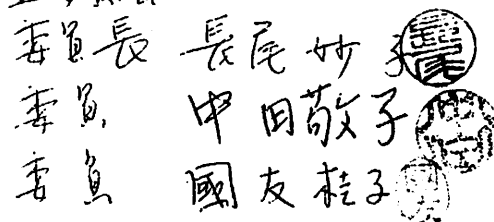 委員長 長尾妙子
委員 中田敬子
委員 國友桂子